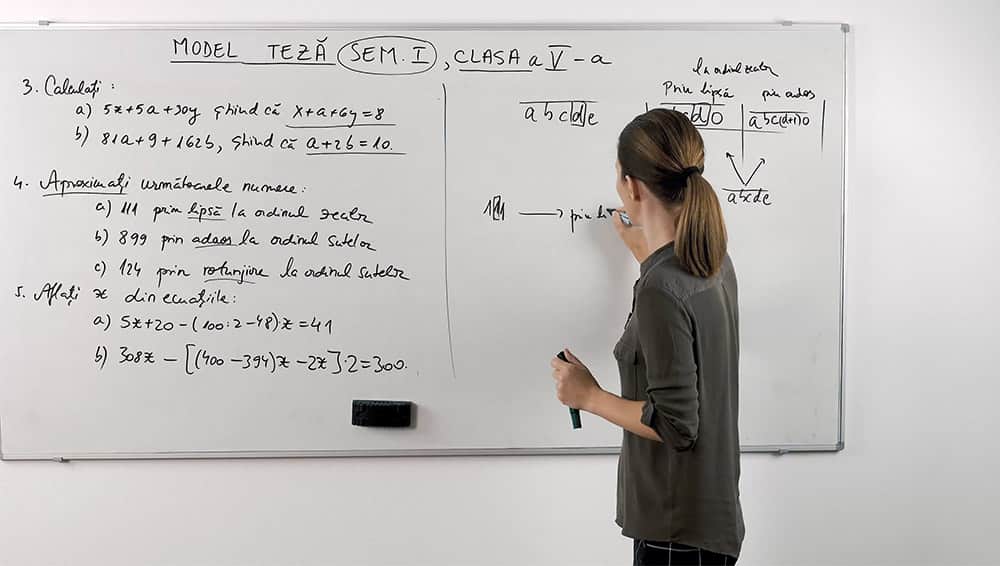 MODEL TEZĂ SEM. I, CLASA a V-a
3. Calculați:
a) 5x+5a+30y știind că x+a+6y=8
b) 81a+9+162b, știind că a+2b=10.
4. Aproximați următoarele numere:
a) 111 prin lipsă la ordinul zecilor
b) 899 prin adaos la ordinul sutelor
c) 124 prin rotunjire la ordinul sutelor
5. Aflați x din ecuațiile:
a) 5x+20-(100:2-48)·x=41
b) 308x-[(400-394)x-2x]·2=300.
la ordinul zecilor
Prin lipsă
prin adaos
abcde
d0
abc(d+1)0
abcde
111 → prin li